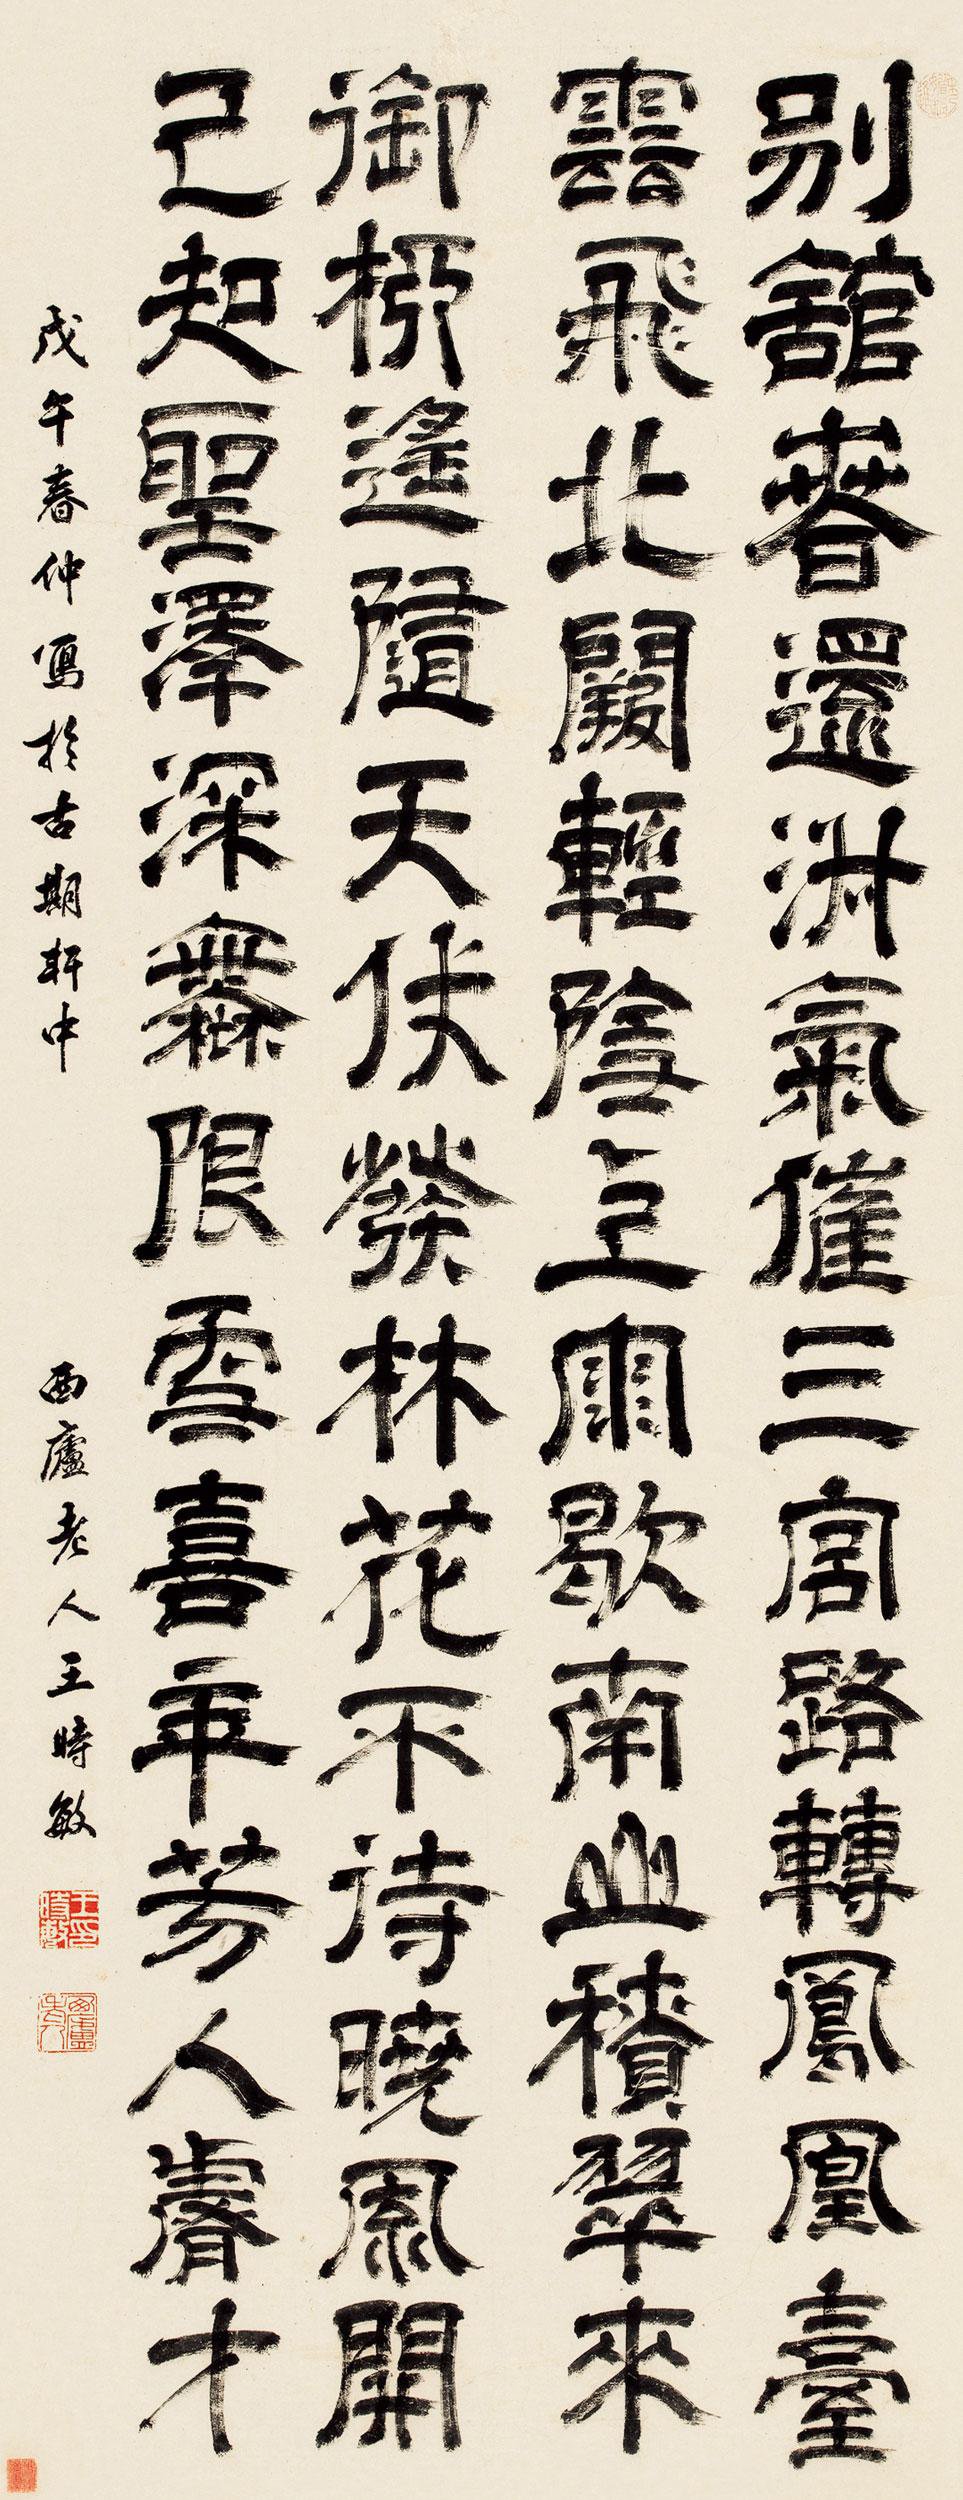 別舘春還淑氣催三宮路轉鳳凰臺
雲飛北闕輕陰雨歇南山積翠來
御柳遙隨天仗發林花不待曉風開
已知聖澤深無限雪喜年芳入睿才
戊午春仲寫於古期軒中
西廬老人王時敏
王時敏印
西廬老人